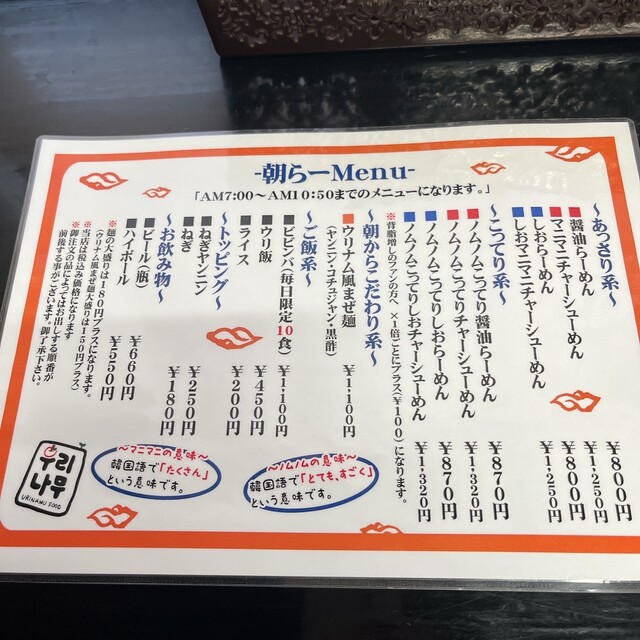 -朝らーMenu-
「AM7:00〜AM10:50までのメニューになります。」
〜あっさり系〜
醤油らーめん ¥800円
マニマニチャーシューめん ¥1,250円
しおらーめん ¥800円
しおマニマニチャーシューめん ¥1,250円
〜こってり系〜
ノムノムこってり醤油らーめん ¥870円
ノムノムこってりチャーシューめん ¥1,320円
ノムノムこってりしおらーめん ¥870円
ノムノムこってりしおチャーシューめん ¥1,320円
※背脂増しのファンの方へ、×1倍ごとにプラス(¥100)になります。
〜朝からこだわり系〜
ウリナム風まぜ麺 ¥1,100円
(ヤンニン・コチュジャン・黒酢)
〜ご飯系〜
ビビンバ(毎日限定10食) ¥1,100円
ウリ飯 ¥450円
ライス ¥200円
〜トッピング〜
ねぎヤンニン ¥250円
ねぎ ¥180円
〜お飲み物〜
ビール(瓶) ¥660円
ハイボール ¥550円
※麺の大盛りは180円プラスになります。
(ウリナム風まぜ麺大盛りは150円プラス)
※当店は税込み価格になります
※御注文の品によってはお出しする順番が
前後する事がございます。御了承下さい。
〜ノムノムの意味〜
韓国語で「とても、すごく」
という意味です。
〜マニマニの意味〜
韓国語で「たくさん」
という意味です。
우리
나무
URINAMU FOOD